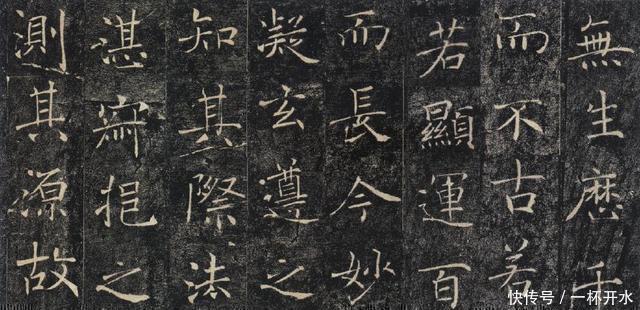 無生歷千
而不古若
若顯運百
而長今妙
凝玄遵之
知其際法
湛寂挹之
測其源故
快传号/一杯开水